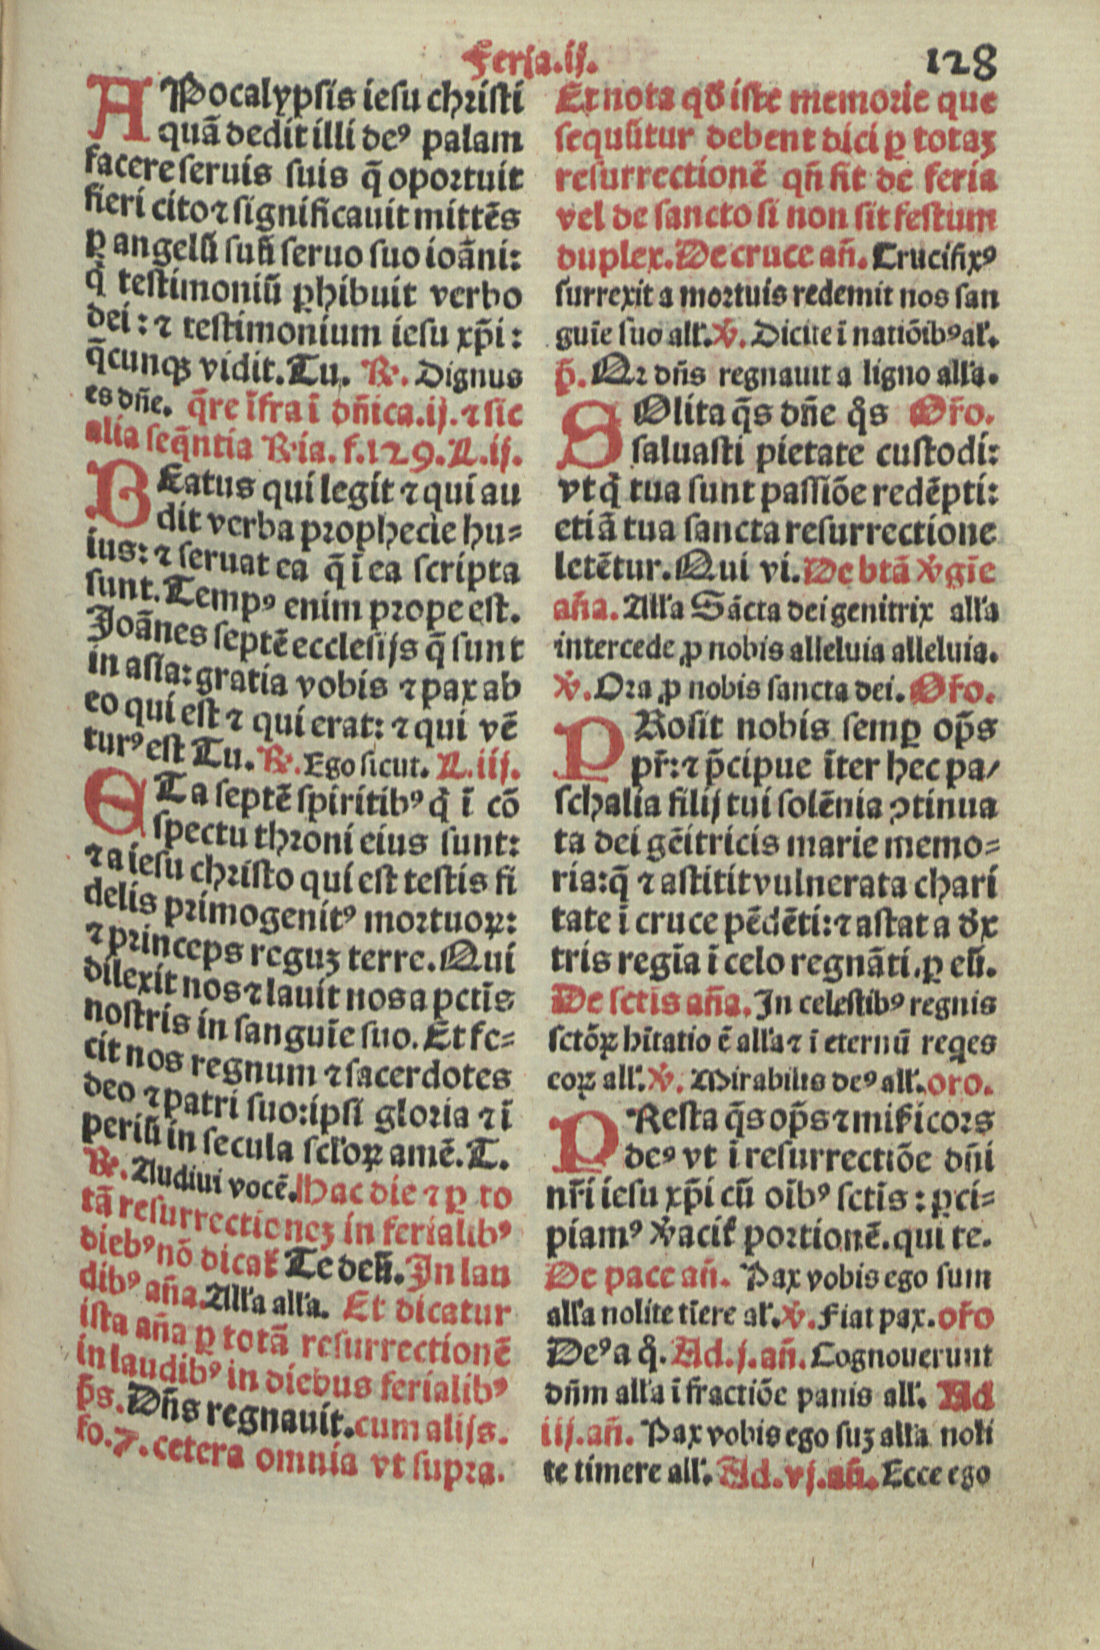 Feria.ij.
128
APocalypsis iesu christi
quã dedit illi deꝰ palam
facere seruis suis q̃ oportuit
fieri cito ⁊ significauit mittẽs
ꝑ angelũ suũ seruo suo ioãni:
q̇ testimoniũ ꝑhibuit verbo
dei: ⁊ testimonium iesu xp̃i:
q̃cunqꝫ vidit. Tu. ℞. Dignus
es dñe. q̃re ĩfra ĩ dñica.ij. ⁊ sic
alia seq̃ntia ℞ia. f.129. L.ij.
BEatus qui legit ⁊ qui au
dit verba prophecie hu=
ius: ⁊ seruat ea q̃ ĩ ea scripta
sunt. Tempꝰ enim prope est.
Joãnes septẽ ecclesijs q̃ sunt
in asia: gratia vobis ⁊ pax ab
eo qui est ⁊ qui erat: ⁊ qui vẽ
turꝰ est Tu. ℞. Ego sicut. L.iij.
ETa septẽ spiritibꝰ q̇ ĩ cõ
spectu throni eius sunt:
⁊ a iesu christo qui est testis fi
delis primogenitꝰ mortuoꝝ:
⁊ princeps reguꝫ terre. Qui
dilexit nos ⁊ lauit nos a pctĩs
nostris in sanguĩe suo. Et fe=
cit nos regnum ⁊ sacerdotes
deo ⁊ patri suo: ipsi gloria ⁊ ĩ
periũ in secula scl'oꝝ amẽ. T.
℞. Audiui vocẽ. Hac die ⁊ ꝑ to
tã resurrectioneꝫ in ferialibꝰ
diebꝰ nõ dicat̃ Te deũ. In lau
dibꝰ aña. All'a all'a. Et dicatur
ista aña ꝑ totã resurrectionẽ
in laudibꝰ in diebus ferialibꝰ
p̃s. Dñs regnauit. cum alijs.
fo.7. cetera omnia vt supra.
Et nota qđ iste memorie que
sequũtur debent dici ꝑ totaꝫ
resurrectionẽ qñ fit de feria
vel de sancto si non sit festum
duplex. De cruce añ. Crucifixꝰ
surrexit a mortuis redemit nos san
guĩe suo all'. ℣. Dicite ĩ natiõibꝰ al'.
p̃. Qr dñs regnauit a ligno all'a.
SOlita q̃s dñe q̇s Or̃o.
saluasti pietate custodi:
vt q̇ tua sunt passiõe redẽpti:
etiã tua sancta resurrectione
letẽtur. Qui vi. De btã v̓gĩe
aña. All'a Sãcta dei genitrix all'a
intercede ꝓ nobis alleluia alleluia.
℣. Ora ꝓ nobis sancta dei. Or̃o.
PRosit nobis semꝑ op̃s
pr̃: ⁊ p̃cipue ĩter hec pa/
schalia filij tui solẽnia ꝯtinua
ta dei gẽitricis marie memo=
ria: q̃ ⁊ astitit vulnerata chari
tate ĩ cruce pẽdẽti: ⁊ astat a dx
tris regĩa ĩ celo regnãti. ꝑ eũ.
De sctĩs aña. In celestibꝰ regnis
sctõꝝ hĩtatio ẽ all'a ⁊ ĩ eternũ reqes
eoꝝ all'. ℣. Mirabilis deꝰ all'. oro.
PResta q̃s op̃s ⁊ mis̃icors
deꝰ vt ĩ resurrectiõe dñi
nr̃i iesu xp̃i cũ oĩbꝰ sctĩs: ꝑci=
piamꝰ v̓acit̃ portionẽ. qui te.
De pace añ. Pax vobis ego sum
all'a nolite tĩere al'. ℣. Fiat pax. or̃o
Deꝰ a q̇. Ad.j.añ. Cognouerunt
dñm all'a ĩ fractiõe panis all'. Ad
iij.añ. Pax vobis ego suꝫ all'a noli
te timere all'. Ad.vj.añ. Ecce ego